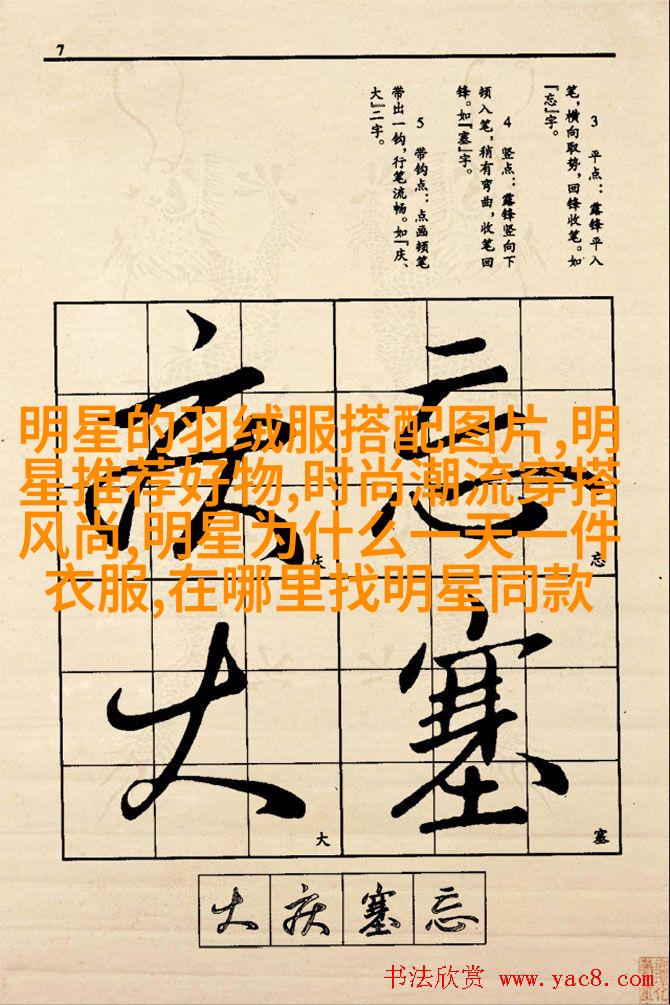 7
3 平点：露锋平入
笔，横向取势，回锋收笔。如
『忘』字。
4 竖点：露锋竖向下
顿入笔，稍有弯曲，收笔回
锋。如『塞』字。
5 带钩点：点画顿笔
带出一钩，行笔流畅。如『庆、
大』二字。
庆 忘
明星的羽绒服搭配图片,明
星推荐好物,时尚潮流穿搭
风尚,明星为什么一天一件
衣服,在哪里找明星同款
庆 忘
大 塞
大 塞
大 庆 塞 忘
书法欣赏 www.yac8.com